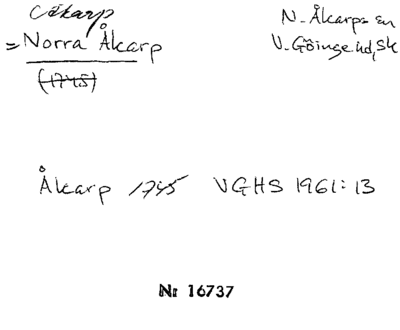 Cåkarp
N. Åkarps sn
= Norra Åkarp
V. Göinge hd, Sk
(1745)
Åkarp 1745 VGHS 1961:13
Nr 16737